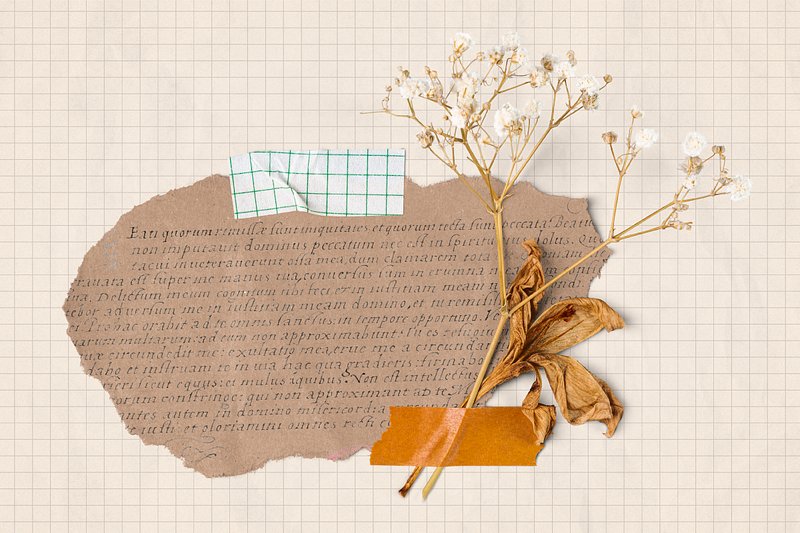 Eati quorum remissæ sunt iniquitates et quorum tecta sunt peccata. Beatu
non imputauit dominus peccatum nec est in spiritu dolus. Qu
tacui inueterauerunt ossa mea, dum clamarem tota
tauata est super me manus tua, conuersus sum in erumna
na. Delictum meum cognitum tibi feci, et in iustitiam meam n
bor aduersum me in iustitiam meam domino, et tu remisi
ei. Pro hac orabit ad te omnis sanctus, in tempore opportuno.
arum multarum, ad eum non approximabunt. Tu es refugiu
quæ circundedit me: exultatio mea, erue me a circundan
labo et instruam te in uia hac qua gradieris: firmabo
fieri sicut equus et mulus quibus Non est intellectus
orum constringe: qui non approximant ad te
antes autem in domino misericordia circundab
te iusti: et gloriamini omnes recti co